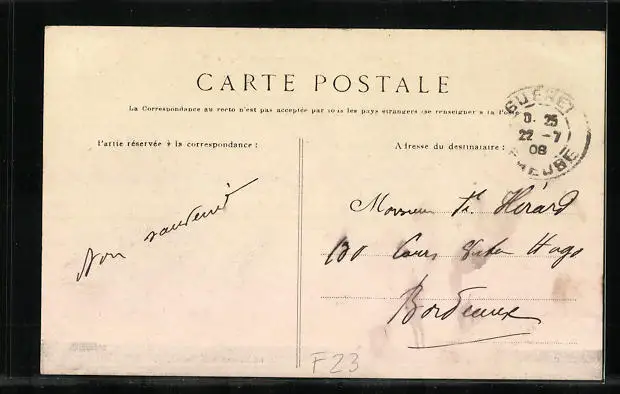 CARTE POSTALE
La Correspondance au recto n'est pas acceptée par tous les pays étrangers (se renseigner à la Poste
Partie réservée à la correspondance :
Adresse du destinataire :
GUÉRET
22 - 7
08
CREUSE
Bon souvenir
Monsieur Hérard
130 Cours Victor Hugo
Bordeaux
F23